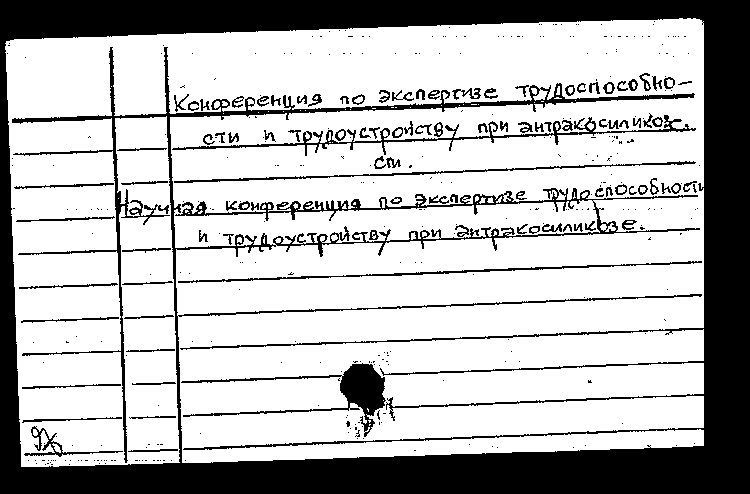 Конференция по экспертизе трудоспособно-
сти и трудоустройству при антракосиликоз.
См.
Научная конференция по экспертизе трудоспособности
и трудоустройству при антракосиликозе.